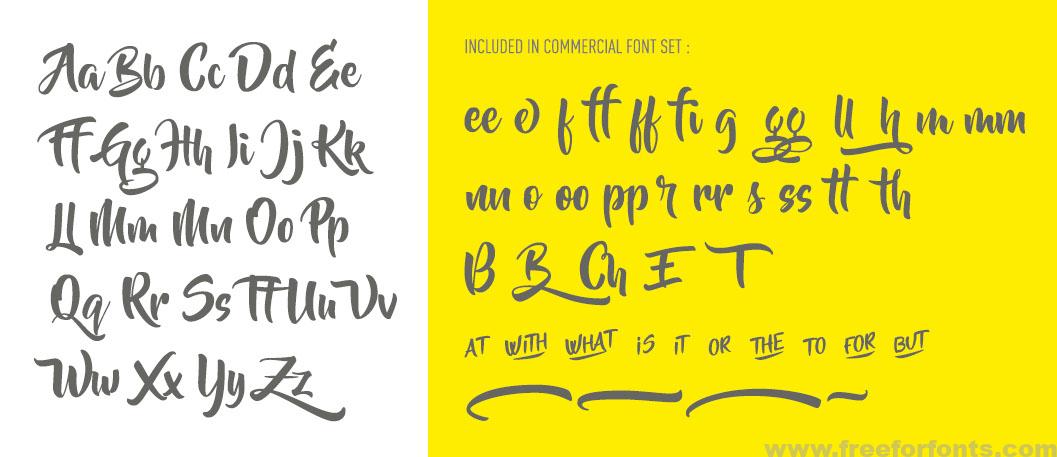 Aa Bb Cc Dd Ee
Ff Gg Hh Ii Jj Kk
Ll Mm Nn Oo Pp
Qq Rr Ss Tt Uu Vv
Ww Xx Yy Zz
INCLUDED IN COMMERCIAL FONT SET :
ee o f tf ff fi g gg ll h m mm
nn o oo pp r rr s ss tt th
B B Ch E T
AT WiTH WHAT iS iT OR THE TO FOR BUT
www.freeforfonts.com